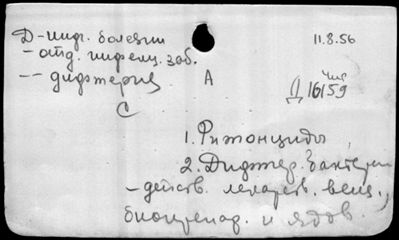 Д-инф. болезни
11.8.56
- отд. инфекц. заб.
-- дифтерия
А
Д 16159
С
1. Фитонциды
2. Дифтер. бактерии
- действ. лекарств. вещ.,
биопрепар. и ядов.